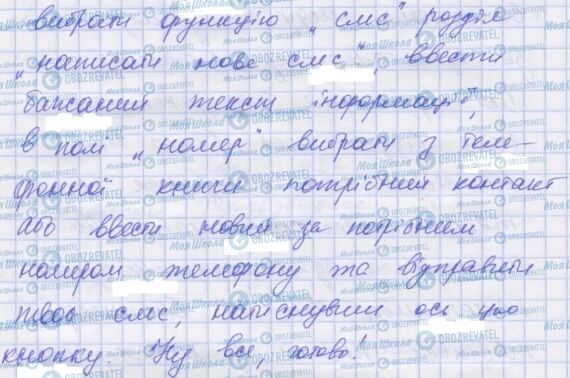 вибрати функцію „смс" розділ
„написати нове смс", ввести
бажаний текст інформації,
в полі „номер" вибрати з теле-
фонної книги потрібний контакт
або ввести новий за потрібним
номером телефону та відправити
твоє смс, натиснувши ось цю
кнопку. Ну все, готово!"